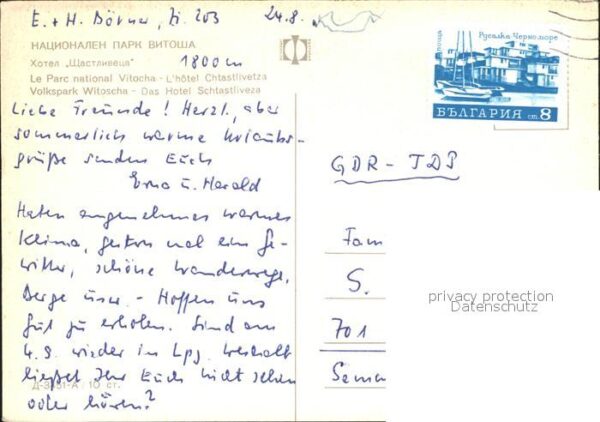 E. + H. Börner, Zi. 203 24.8.
НАЦИОНАЛЕН ПАРК ВИТОША
Хотел „Щастливеца" 1800m
Le Parc national Vitocha - L'hôtel Chtastlivetza
Volkspark Witoscha - Das Hotel Schtastliveza
Liebe Freunde! Herzl., aber
sommerlich warme Urlaubs-
grüße senden Euch
Erna u. Harald
Haben angenehmes warmes
Klima, gestern mal ein Ge-
witter, schöne Wanderwege,
Berge usw. - Hoffen uns
gut zu erholen. Sind am
4.9. wieder in Lpz. Weshalb
ließet Ihr Euch nicht sehen
oder hören?
Д-3 51-А / 10 ст.
поща Русалка Черноморе
БЪЛГАРИЯ ст. 8
GDR - ГДР
Fam
S.
701
privacy protection
Datenschutz